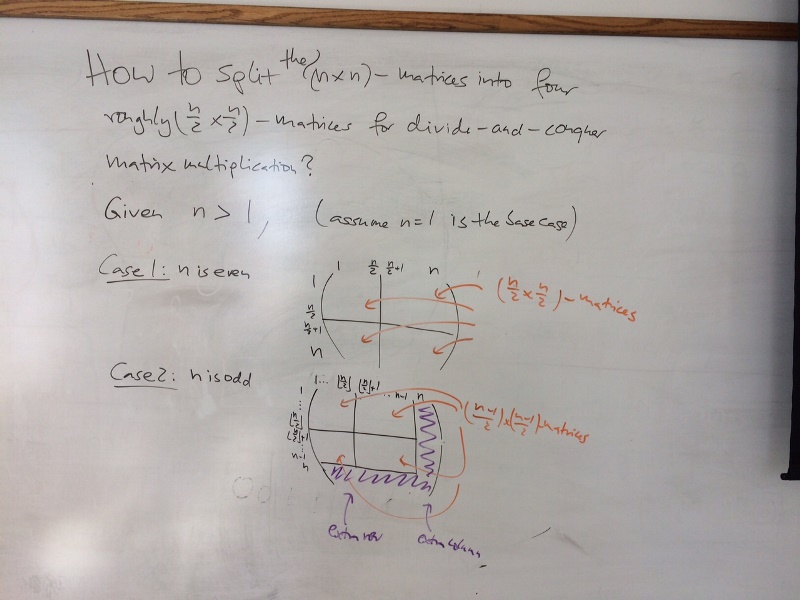 How to split the (n×n)-matrices into four
roughly (n/2 × n/2)-matrices for divide-and-conquer
matrix multiplication?
Given n > 1, (assume n=1 is the base case)
Case 1: n is even
1 n/2 n/2+1 n
1
n/2
n/2+1
n
(n/2 × n/2)-matrices
Case 2: n is odd
1... ⌊n/2⌋ ⌊n/2⌋+1 ... n-1 n
1
⋮
⌊n/2⌋
⌊n/2⌋+1
⋮
n-1
n
(n-1/2)×(n-1/2)-matrices
extra row extra column